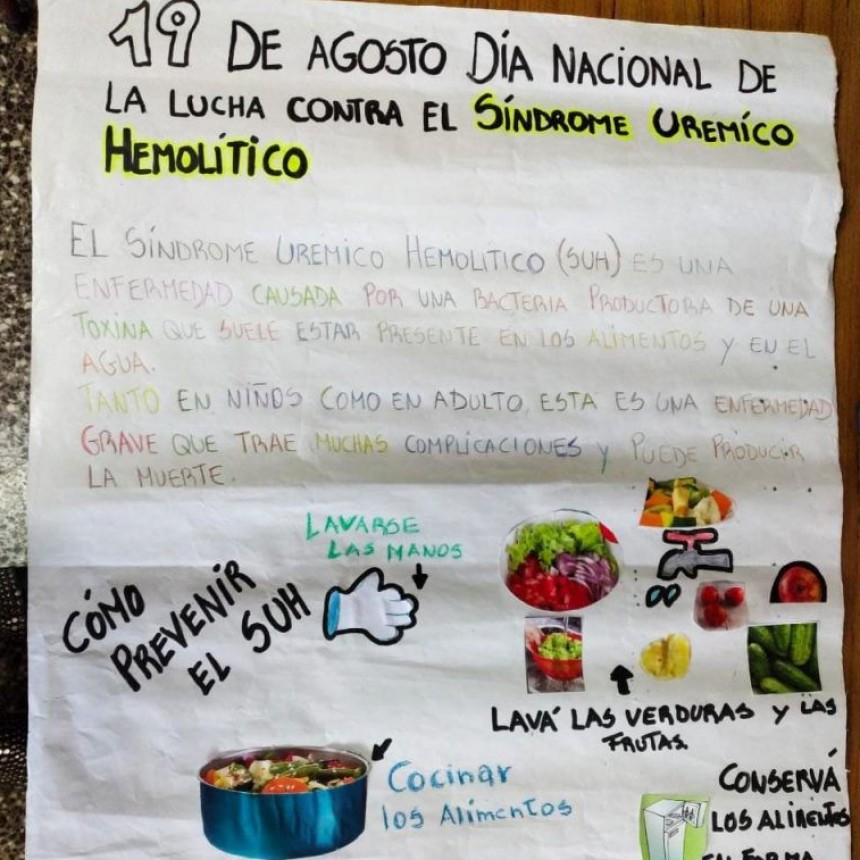 19 DE AGOSTO DÍA NACIONAL DE
LA LUCHA CONTRA EL SÍNDROME UREMÍCO
HEMOLÍTICO
EL SÍNDROME UREMICO HEMOLITICO (SUH) ES UNA
ENFERMEDAD CAUSADA POR UNA BACTERIA PRODUCTORA DE UNA
TOXINA QUE SUELE ESTAR PRESENTE EN LOS ALIMENTOS Y EN EL
AGUA.
TANTO EN NIÑOS COMO EN ADULTO, ESTA ES UNA ENFERMEDAD
GRAVE QUE TRAE MUCHAS COMPLICACIONES Y PUEDE PRODUCIR
LA MUERTE.
LAVARSE
LAS MANOS
CÓMO
PREVENIR
EL SUH
LAVÁ LAS VERDURAS Y LAS
FRUTAS.
Cocinar
los Alimentos
CONSERVÁ
LOS ALIMENTOS
EN FORMA